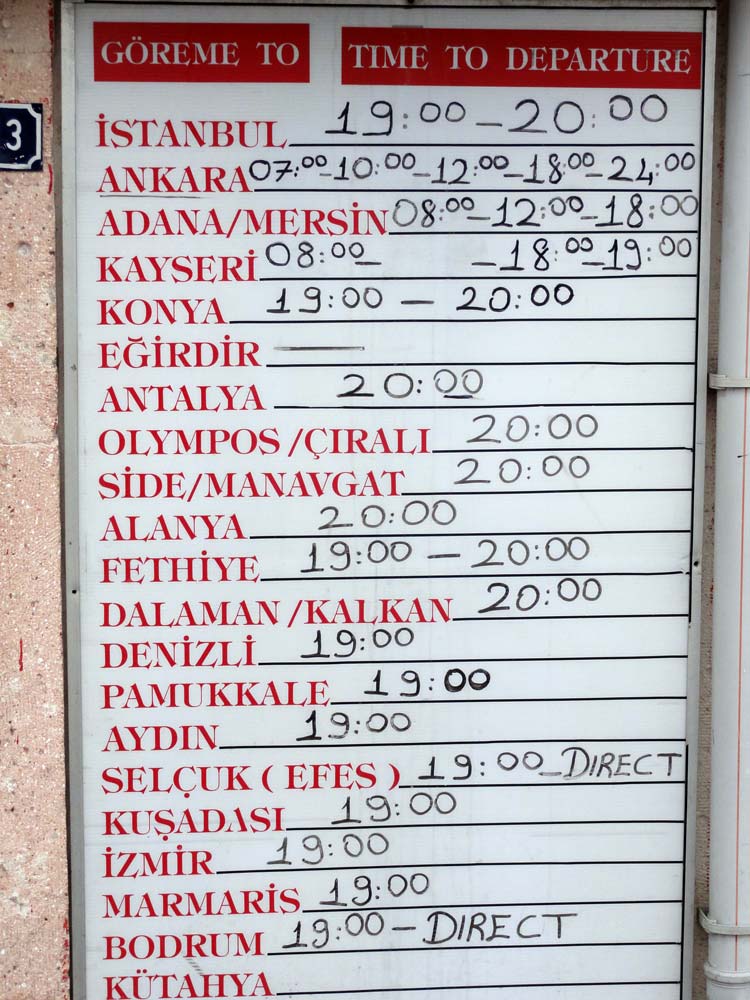 GÖREME TO TIME TO DEPARTURE
3
İSTANBUL 19:00 – 20:00
ANKARA 07:00-10:00-12:00-18:00-24:00
ADANA/MERSİN 08:00-12:00-18:00
KAYSERİ 08:00- -18:00-19:00
KONYA 19:00 – 20:00
EĞİRDİR —
ANTALYA 20:00
OLYMPOS /ÇIRALI 20:00
SİDE/MANAVGAT 20:00
ALANYA 20:00
FETHİYE 19:00 – 20:00
DALAMAN /KALKAN 20:00
DENİZLİ 19:00
PAMUKKALE 19:00
AYDIN 19:00
SELÇUK ( EFES ) 19:00-DIRECT
KUŞADASI 19:00
İZMİR 19:00
MARMARİS 19:00
BODRUM 19:00 – DIRECT
KÜTAHYA